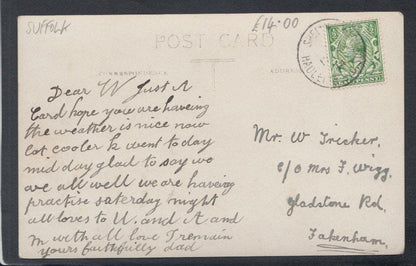 SUFFOLK
£14.00
POST CARD
CORRESPONDENCE
ADDRESS
Dear W Just A
Card hope you are haveing
the weather is nice now
lot cooler & went to day
mid day glad to say we
are all well we are haveing
practise saterday night
all loves to U. and A and
M with all love I remain
yours faithfully dad
Mr. W Tricker.
c/o Mrs F. Wigg.
Gladstone Rd.
Fakenham.